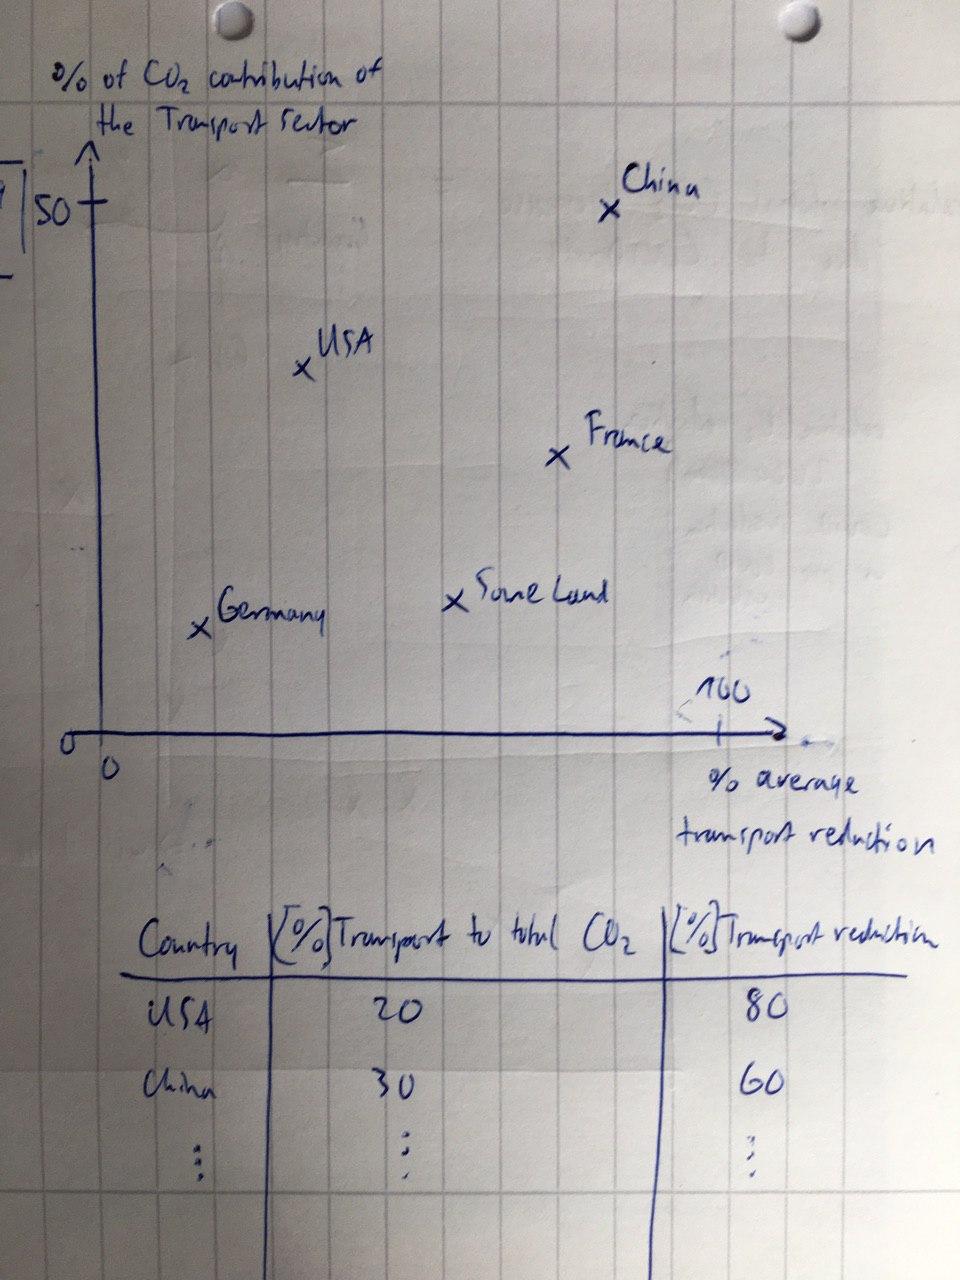 % of CO₂ contribution of
the Transport sector
50
China
USA
France
Some Land
Germany
100
0
0
% average
transport reduction
Country [%] Transport to total CO₂ [%] Transport reduction
USA 20 80
China 30 60
⋮ ⋮ ⋮